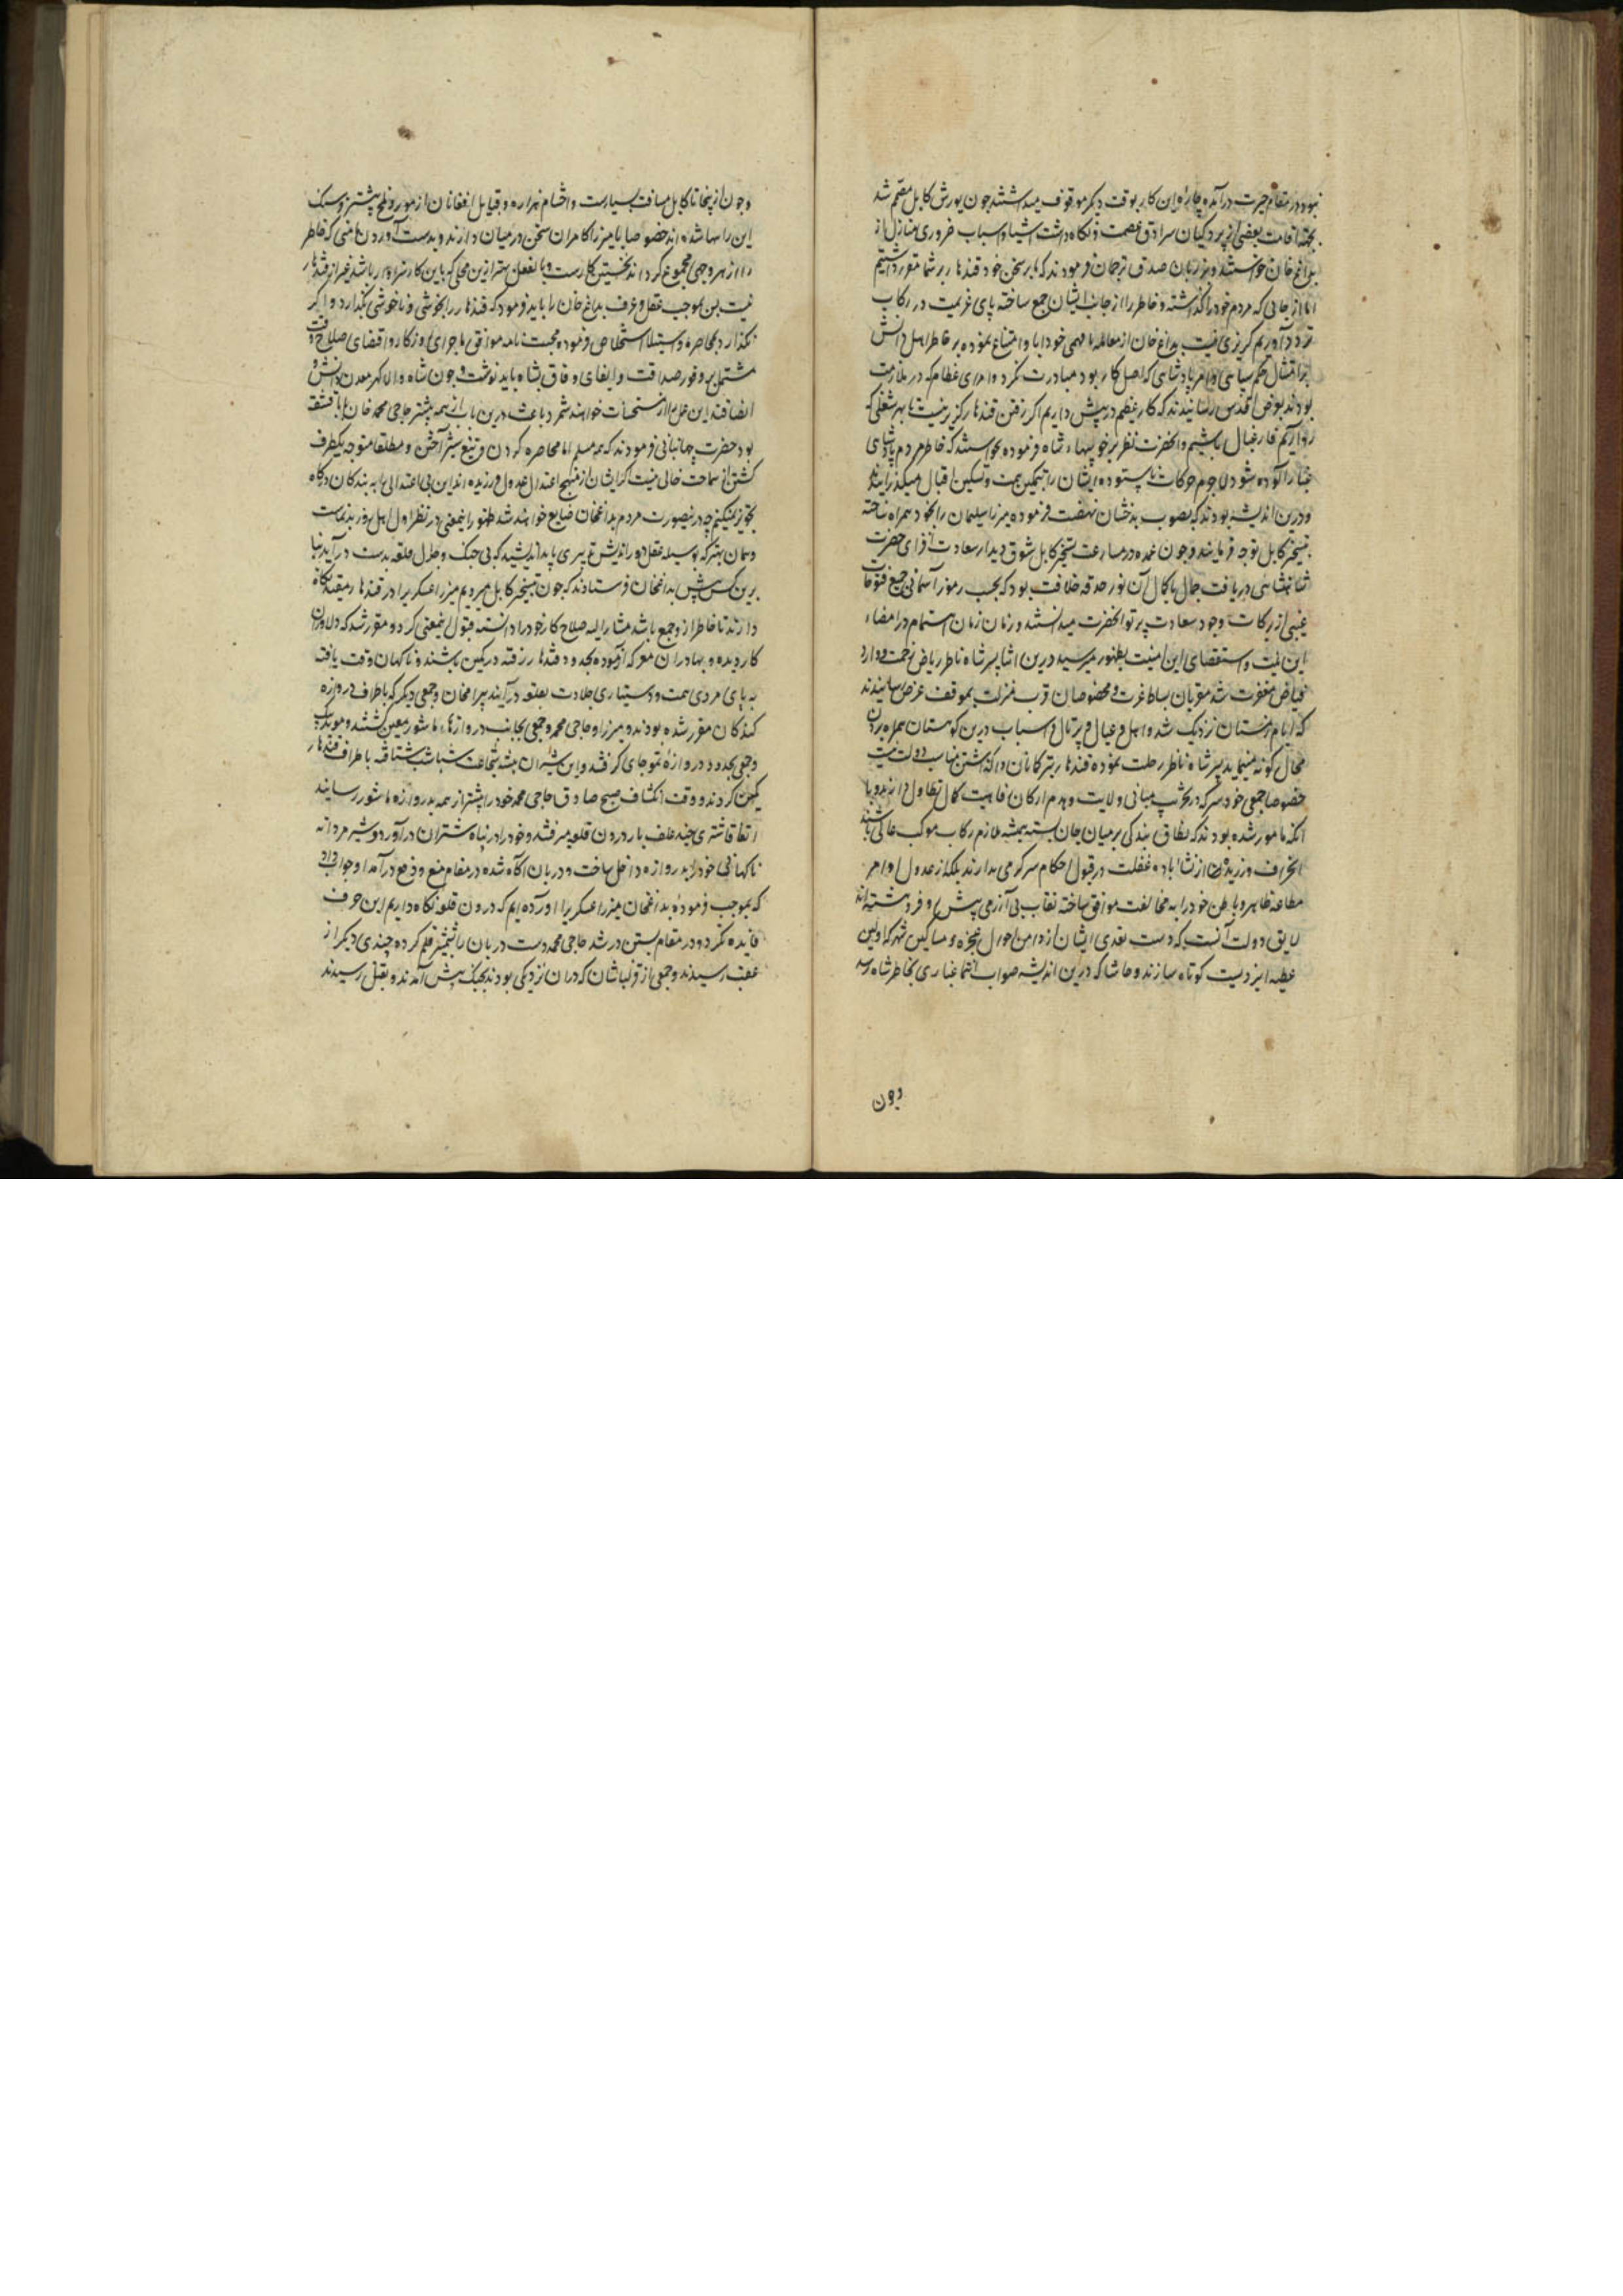 نبود در مقام حیرت درآمده چاره این کار بوقت دیگر موقوف میداشتند چون یورش کابل مصمم شد
بجهت اقامت بعضی از پردگیان سرادق عصمت و نگاه داشت اشیا و اسباب ضروری منازل از
بداغ خان خواستند و بر زبان صدق ترجمان فرمودند که ما بر سخن خود قندهار بر شما مقرر داشتیم
اما از جائی که مردم خود را گذاشته و خاطر را از جانب ایشان جمع ساخته پای عزیمت در رکاب
تردد آوریم گریزی نیست بداغ خان از معامله نافهمی خود ابا و امتناع نموده بر خاطر اهل دانش
امرای عظام که در ملازمت
بودند بعرض اقدس رسانیدند که کار عظیم در پیش داریم اگر گرفتن قندهار ناگزیر نیست تا بهر شغلی که
رو آریم فارغبال باشیم و آنحضرت نظر بر خوبیهای شاه فرموده نمیخواستند که خاطر مردم پادشاهی
غبار آلوده شود لاجرم حرکات ناستوده ایشان را بتمکین همت و تسکین اقبال میگذرانیدند
و درین اندیشه بودند که بصوب بدخشان نهضت فرموده میرزا سلیمان را بخود همراه ساخته
بتسخیر کابل توجه فرمایند و چون عمده در مسارعت تسخیر کابل شوق دیدار سعادت افزای حضرت
شاهنشاهی و دریافت جمال با کمال آن نور حدقه خلافت بود که بحسب رموز آسمانی جمیع فتوحات
غیبی از برکات وجود سعادت پرتو آنحضرت میدانستند و زمان زمان اهتمام در امضاء
این نیت و استقصای این امنیت بظهور میرسید درین اثنا پسر شاه ناظر ریاض رحمت و وارد
فیاض مغفرت شد مقربان بساط عزت و مخصوصان قرب منزلت بموقف عرض رسانیدند
که ایام زمستان نزدیک شد و اهل و عیال و پرتال و اسباب درین کوهستان همراه بردن
محال گونه مینماید پسر شاه ناظر رحلت نموده قندهار بترکمانان واگذاشتن مناسب دولت نیست
خصوصا جمعی خودسر که در تخریب مبانی ولایت و هدم ارکان رفاهیت کمال تطاول دارند و با
آنکه مامور شده بودند که نطاق بندگی بر میان جان بسته همیشه ملازم رکاب موکب عالی باشند
انحراف ورزیده از نشأ باده غفلت در قبول احکام سرگرمی ندارند بلکه از عدول اوامر
مطاعه ظاهر و باطن خود را به مخالفت موافق ساخته نقاب بی آزرمی پیش رو فرو هشته اند
لایق دولت آنست که دست تعدی ایشان از دامن احوال عجزه و مساکین شهر که اولین
عطیه ایزدیست کوتاه سازند و حاشا که درین اندیشه صواب انتما غباری بخاطر شاه رسد
و چون
و چون از اینجا تا کابل مسافت بسیارست و احشام هزاره و قبایل افغانان از مور و ملخ بیشتر و سنگ
این راهها شده اند خصوصا با میرزا کامران سخن در میان دارند و بدست آوردن مامنی که خاطر
را از هر وجهی مجموع گرداند نخستین کارست و بالفعل بهتر ازین محلی که باین کار سزاوار باشد غیر از قندهار
نیست پس بموجب عقل و عرف بداغ خان را باید فرمود که قندهار را بخوشی و ناخوشی بگذارد و اگر
نگذارد بمحاصره و استیلا استخلاص فرموده محبت نامه موافق ماجرای روزگار و اقتضای صلاح وقت
مشتمل بر وفور صداقت و ایفای وفاق بشاه باید نوشت و چون شاه والاگهر معدن دانش و
انصافند این صلاح را از مستحسنات خواهند شمرد باعث درین باب از همه بیشتر حاجی محمد خان بابا قشقه
بود حضرت جهانبانی فرمودند که همه مسلم اما محاصره کردن و تیغ ستیز آختن و مطلقا متوجه بیکطرف
گشتن از سماجت خالی نیست اگر ایشان از منهج اعتدال عدول ورزیده اند این بی اعتدالی ها به بندگان درگاه
تجویز نمیکنم چه درینصورت مردم بداغ خان ضایع خواهند شد ظهور اینمعنی در نظر اول اهل هوش ناپسندیده است
و همان بهتر که بوسیله عقل دوراندیش تدبیری باید اندیشید که بی جنگ و جدل قلعه بدست درآید بنا
برین کس پیش بداغ خان فرستادند که چون بتسخیر کابل میرویم میرزا عسکری را در قندهار مقید نگاه
دارند تا خاطر از او جمع باشد مشارالیه صلاح کار خود را دانسته قبول اینمعنی کرد و مقرر شد که دلاوران
کاردیده و بهادران معرکه آزموده بحدود قندهار رفته در کمین باشند و ناگهان وقت یافته
به پای مردی همت و دستیاری جلادت بقلعه درآیند بیرامخان و جمعی دیگر که باطراف دروازه
کندکان مقرر شده بودند و میرزا و حاجی محمد و جمعی بجانب دروازه ماشور معین گشتند و موید بیگ
و جمعی بحدود دروازه نو جای گرفتند و این شیران بیشه شجاعت شباشب شتافته باطراف قندهار
کمین کردند و وقت انکشاف صبح صادق حاجی محمد خود را پیشتر از همه بدروازه ماشور رسانید
اتفاقا شتری چند علف بار درون قلعه میرفتند و خود را در پناه شتران درآورد و شیر مردانه
ناگهانی خود را بدروازه داخل ساخت و دربان آگاه شده در مقام منع و دفع درآمد او جواب داد
که بموجب فرموده بداغ خان میرزا عسکری را آورده ایم که درون قلعه نگاه داریم این حرف
فایده نکرد و در مقام بستن در شد حاجی محمد دست دربان را بشمشیر قلم کرده چندی دیگر از
عقب رسیدند و جمعی از قزلباشان که دران نزدیکی بودند بجنگ پیش آمدند و بقتل رسیدند